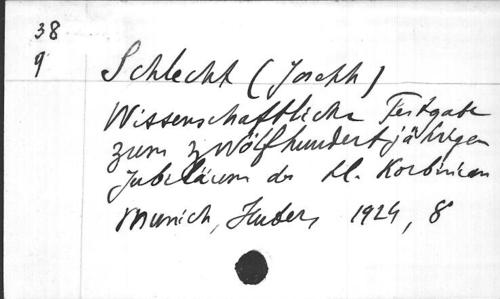 38
9
Schlecht (Joseph)
Wissenschaftliche Festgabe
zum zwölfhundertjährigen
Jubiläum des hl. Korbinian
Munich, Huber, 1924, 8